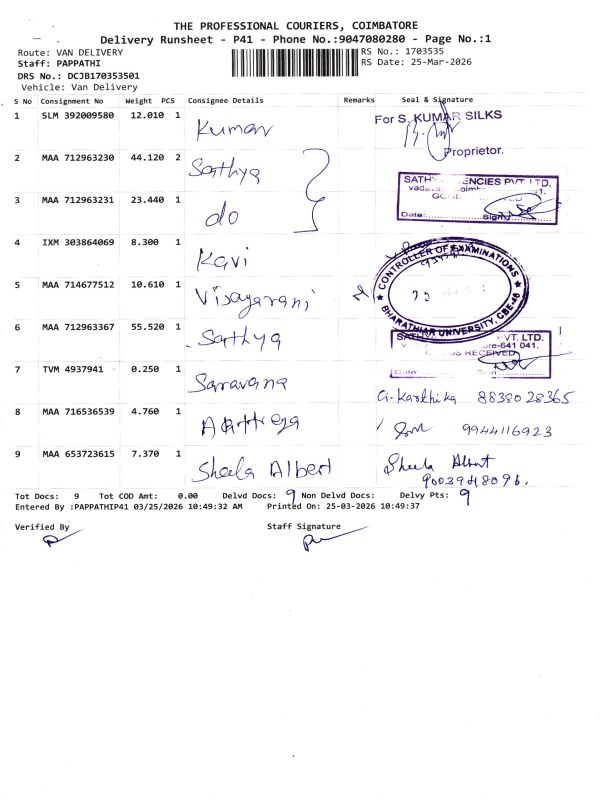 THE PROFESSIONAL COURIERS, COIMBATORE
Delivery Runsheet - P41 - Phone No.:9047080280 - Page No.:1
Route: VAN DELIVERY
RS No.: 1703535
Staff: PAPPATHI
RS Date: 25-Mar-2026
DRS No.: DCJB170353501
Vehicle: Van Delivery
S No Consignment No Weight PCS Consignee Details Remarks Seal & Signature
1 SLM 392009580 12.010 1 Kumar
For S. KUMAR SILKS
Proprietor.
2 MAA 712963230 44.120 2 Sathya
3 MAA 712963231 23.440 1 do
SATHY ENCIES PVT LTD.
Date: Sign
4 IXM 303864069 8.300 1 Kavi
5 MAA 714677512 10.610 1
CONTROLLER OF EXAMINATIONS
BHARATHIAR UNIVERSITY, CBE-46
6 MAA 712963367 55.520 1 Sathya
SATHY PVT. LTD.
ore-641 041.
RECEIVED
Date: Sign
7 TVM 4937941 0.250 1 Saravana
G. Karthika 8838028365
8 MAA 716536539 4.760 1
9944116923
9 MAA 653723615 7.370 1 Sheela Albert
Sheela Albert
9003948096.
Tot Docs: 9 Tot COD Amt: 0.00 Delvd Docs: 9 Non Delvd Docs: Delvy Pts: 9
Entered By :PAPPATHIP41 03/25/2026 10:49:32 AM Printed On: 25-03-2026 10:49:37
Verified By Staff Signature